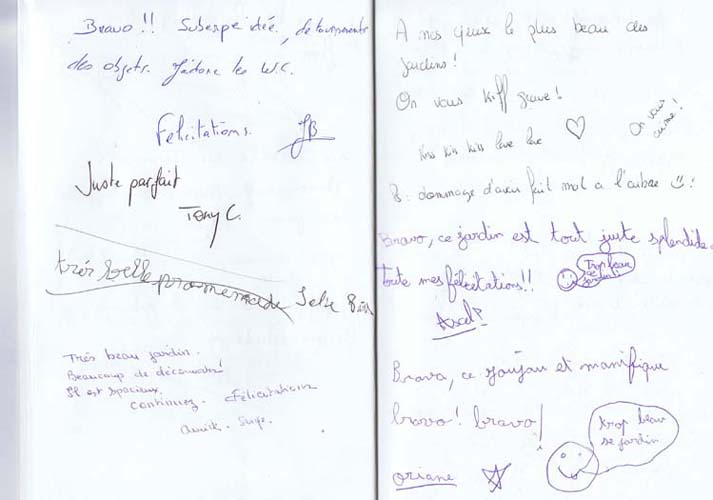 Bravo !! Superpe idée, détournements
des objets. J'adore les W.C.
Félicitations. JB
Juste parfait
Tony C.
très belle promenade
Très beau jardin.
Beaucoup de découvertes!
Il est spacieux.
continuez. Félicitations
A mes yeux le plus beau des
jardins!
On vous kiff grave!
kiss kiss kiss love love
On vous
aime!
dommage d'avoir fait mal a l'arbre
Bravo, ce jardin est tout juste splendide.
Toute mes félicitations!!
Trop beau
ce
jardin!
Axel
Bravo, ce et manifique
bravo! bravo!
trop beau
se jardin
oriane